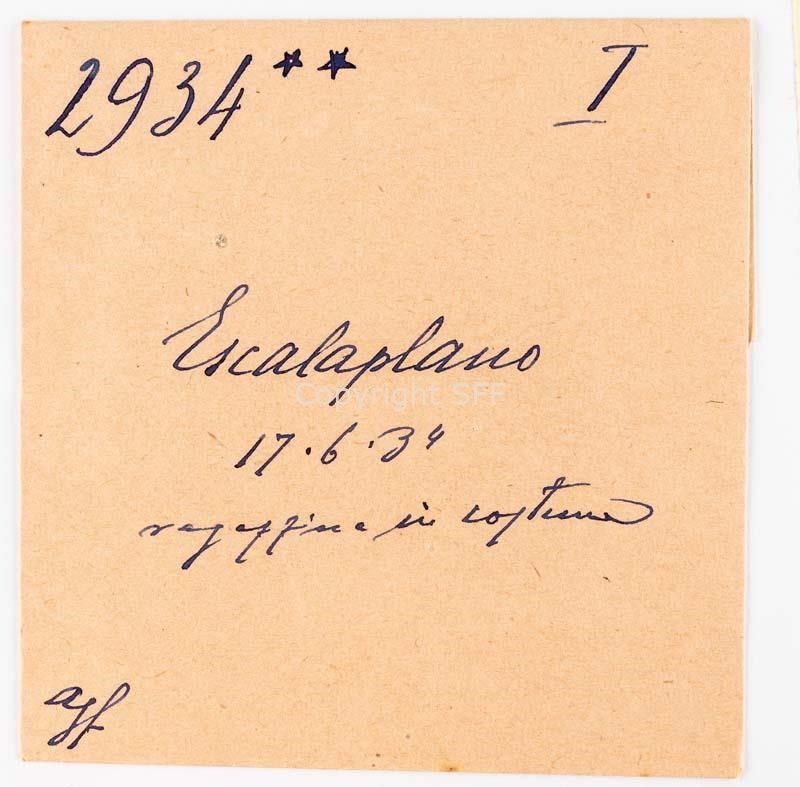 2934** I
Escalaplano
Copyright SFF
17.6.34
ragazzina in costume
agf